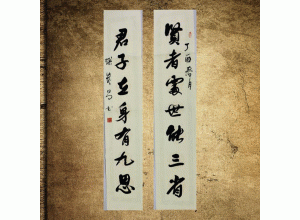 丁酉
賢者處世能三省
君子立身有九思